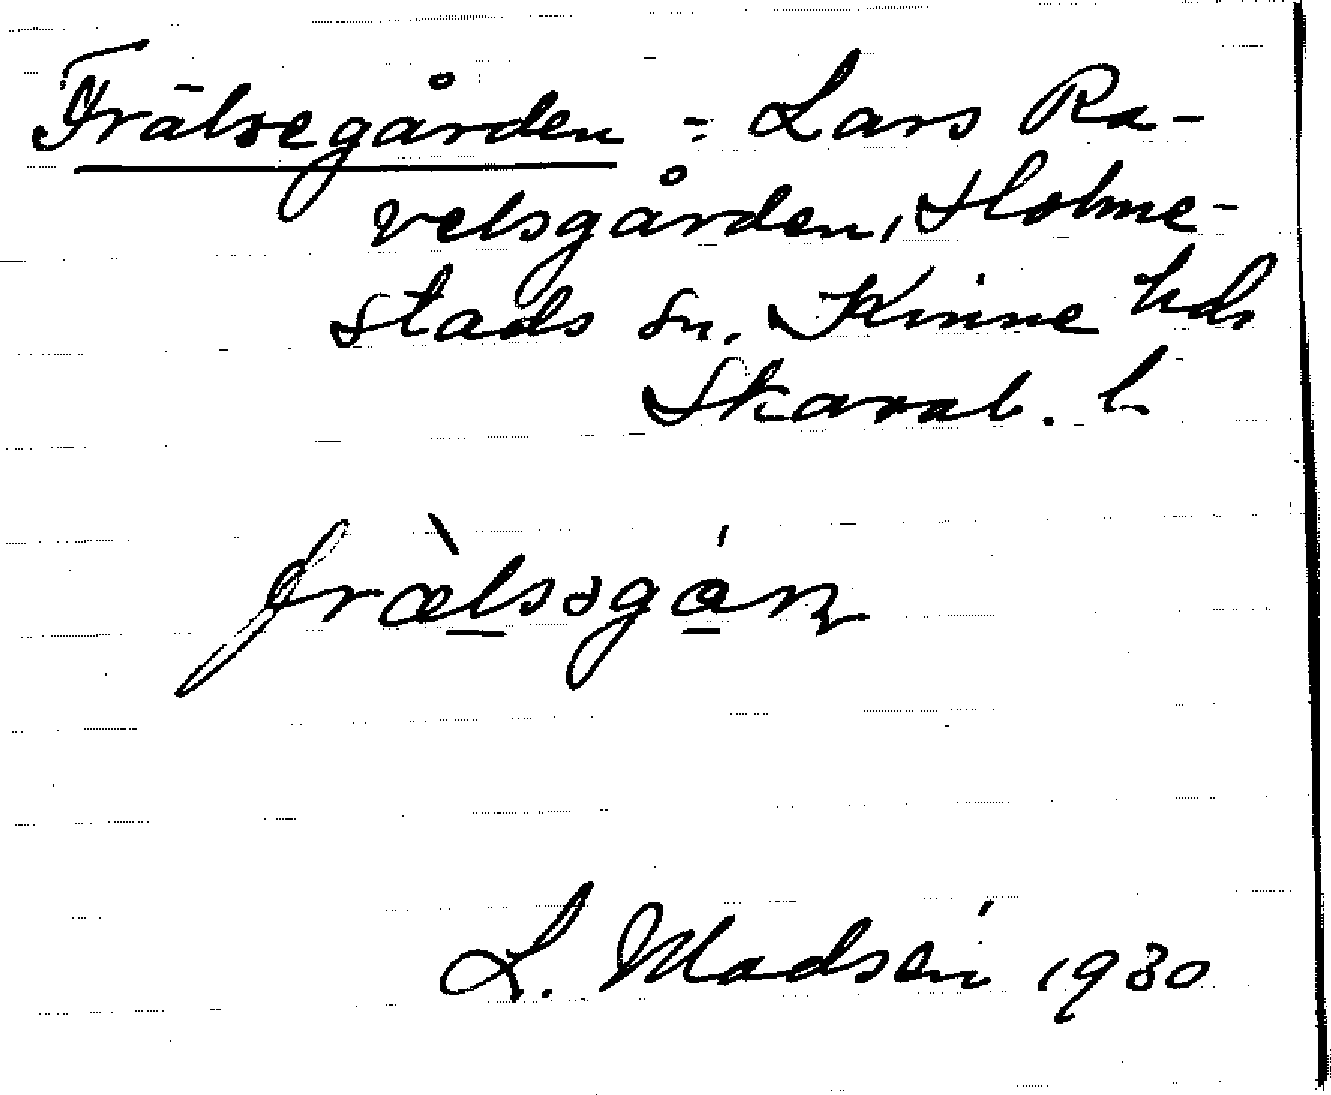 Frälsegården = Lars Ra-
velsgården, Holme-
stads sn. Kinne hd,
Skarab. l.
fræ̀lsəgán
L. Madsén 1930